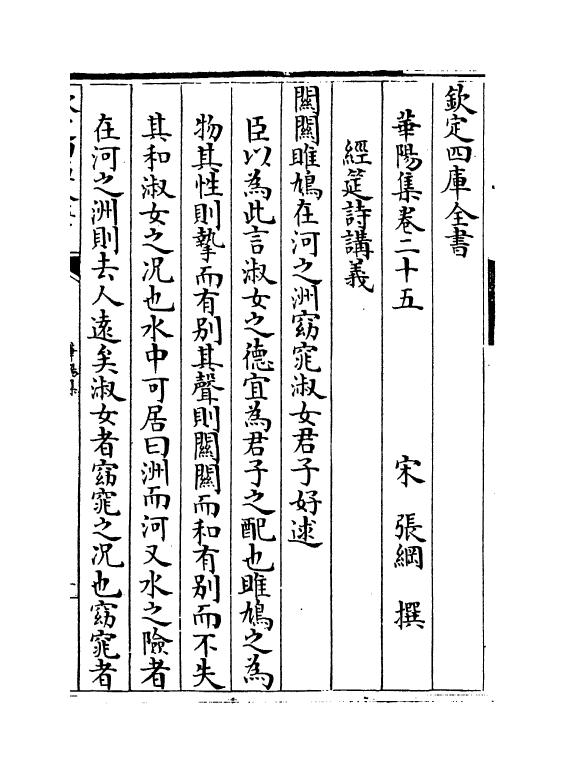 欽定四庫全書
華陽集卷二十五
宋 張綱 撰
經筵詩講義
關關雎鳩在河之洲窈窕淑女君子好逑
臣以為此言淑女之德宜為君子之配也雎鳩之為
物其性則摯而有别其聲則關關而和有别而不失
其和淑女之况也水中可居曰洲而河又水之險者
在河之洲則去人逺矣淑女者窈窕之况也窈窕者
華陽集